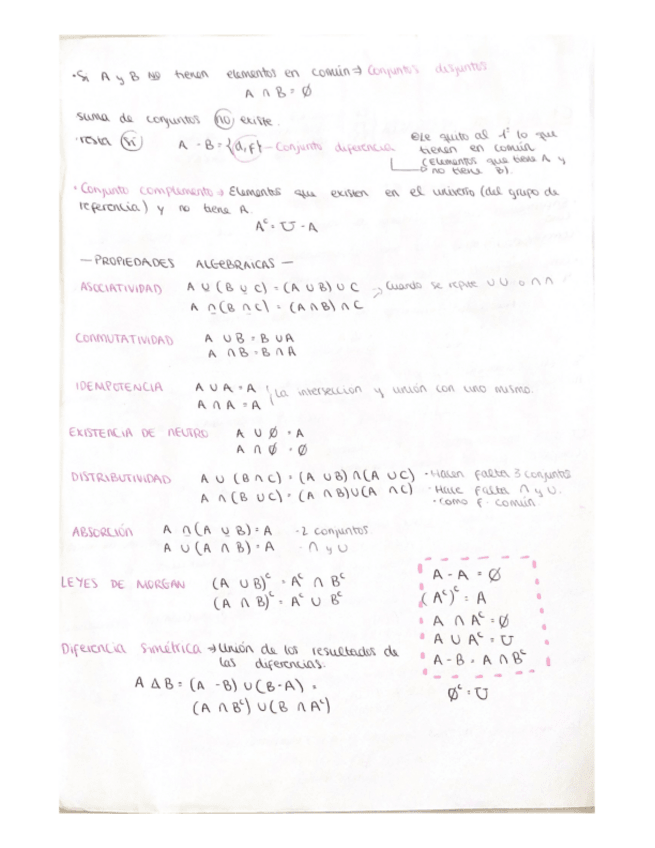 · Si A y B no tienen elementos en común ⇒ Conjuntos disjuntos
A ∩ B = Ø
suma de conjuntos no existe.
· resta sí A - B = {d, f} - Conjunto diferencia
Le quito al 1º lo que
tienen en común
(Elementos que tiene A y
no tiene B).
· Conjunto complemento → Elementos que existen en el universo (del grupo de
referencia) y no tiene A.
Aᶜ = U - A
— PROPIEDADES ALGEBRAICAS —
ASOCIATIVIDAD A ∪ (B ∪ C) = (A ∪ B) ∪ C → Cuando se repite ∪∪ o ∩∩
A ∩ (B ∩ C) = (A ∩ B) ∩ C
CONMUTATIVIDAD A ∪ B = B ∪ A
A ∩ B = B ∩ A
IDEMPOTENCIA A ∪ A = A La intersección y unión con uno mismo.
A ∩ A = A
EXISTENCIA DE NEUTRO A ∪ Ø = A
A ∩ Ø = Ø
DISTRIBUTIVIDAD A ∪ (B ∩ C) = (A ∪ B) ∩ (A ∪ C) · Hacen falta 3 conjuntos
A ∩ (B ∪ C) = (A ∩ B) ∪ (A ∩ C) · Hace falta ∩ y ∪.
· como f. común.
ABSORCIÓN A ∩ (A ∪ B) = A - 2 conjuntos
A ∪ (A ∩ B) = A - ∩ y ∪
LEYES DE MORGAN (A ∪ B)ᶜ = Aᶜ ∩ Bᶜ
(A ∩ B)ᶜ = Aᶜ ∪ Bᶜ
A - A = Ø
(Aᶜ)ᶜ = A
A ∩ Aᶜ = Ø
A ∪ Aᶜ = U
A - B = A ∩ Bᶜ
Øᶜ = U
Diferencia simétrica → Unión de los resultados de
las diferencias.
A Δ B = (A - B) ∪ (B - A) =
(A ∩ Bᶜ) ∪ (B ∩ Aᶜ)